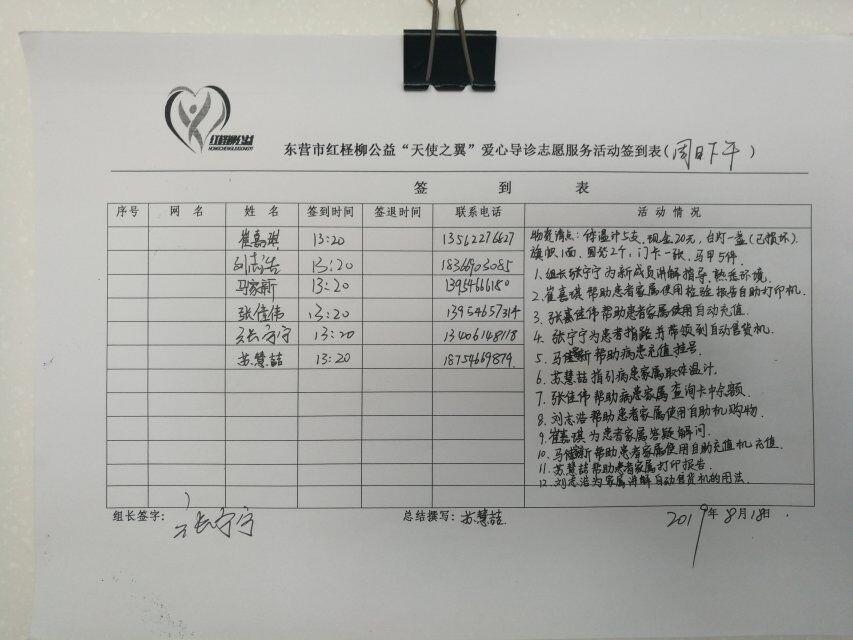 红柽柳公益
HONGCHENGLIUGONGYI
东营市红柽柳公益“天使之翼”爱心导诊志愿服务活动签到表(周日下午)
签 到 表
序号 网 名 姓 名 签到时间 签退时间 联系电话 活 动 情 况
崔嘉琪 13:20 13562276827
刘志浩 13:20 18366903085
马家新 13:20 13954666180
张佳伟 13:20 13954657314
张宁宁 13:20 13406148118
苏慧喆 13:20 18754669879
物资清点:体温计5支、现金20元,台灯一盏(已损坏)
旗帜1面、围裙2个,门卡一张、马甲5件.
1、组长张宁宁为新成员讲解指导、熟悉环境.
2、崔嘉琪帮助患者家属使用检验报告自助打印机.
3、张佳伟帮助患者家属使用自动充值.
4、张宁宁为患者指路并带领到自动售货机.
5、马家新帮助病患充值挂号.
6、苏慧喆指引病患家属取体温计.
7、张佳伟帮助病患家属查询卡中余额.
8、刘志浩帮助患者家属使用自助机购物.
9、崔嘉琪为患者家属答疑解问.
10、马家新帮助患者家属使用自助充值机充值.
11、苏慧喆帮助患者家属打印报告.
12、刘志浩为家属讲解自动售货机的用法.
组长签字: 张宁宁 总结撰写: 苏慧喆 2019年8月18日